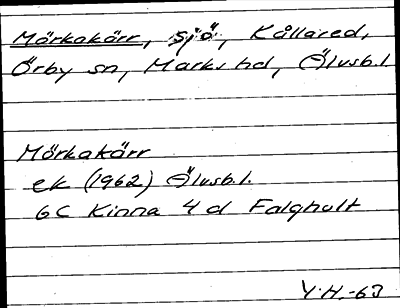 Mörkakärr, sjö, Kållared,
Örby sn, Marks hd, Älvsb.l
Mörkakärr
ek (1962) Älvsb.l.
6C Kinna 4 d Falghult
Y.H.-63